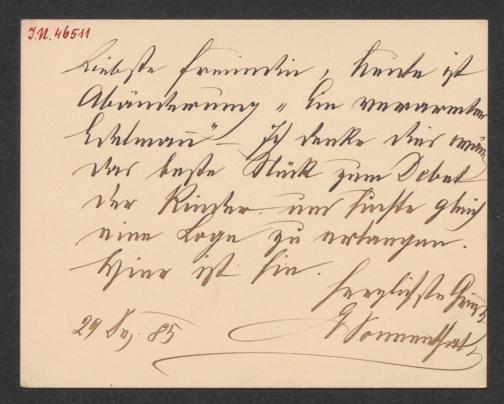 J.N. 46511
Liebste Freundin, heute ist
Abänderung „Ein verarmter
Edelmann" – Ich denke dies wäre
das beste Stück zum Debut
der Kinder und suchte gleich
eine Loge zu erlangen.
Hier ist sie.
Herzlichste Grüße
Sonnenthal
29 Dez. 85